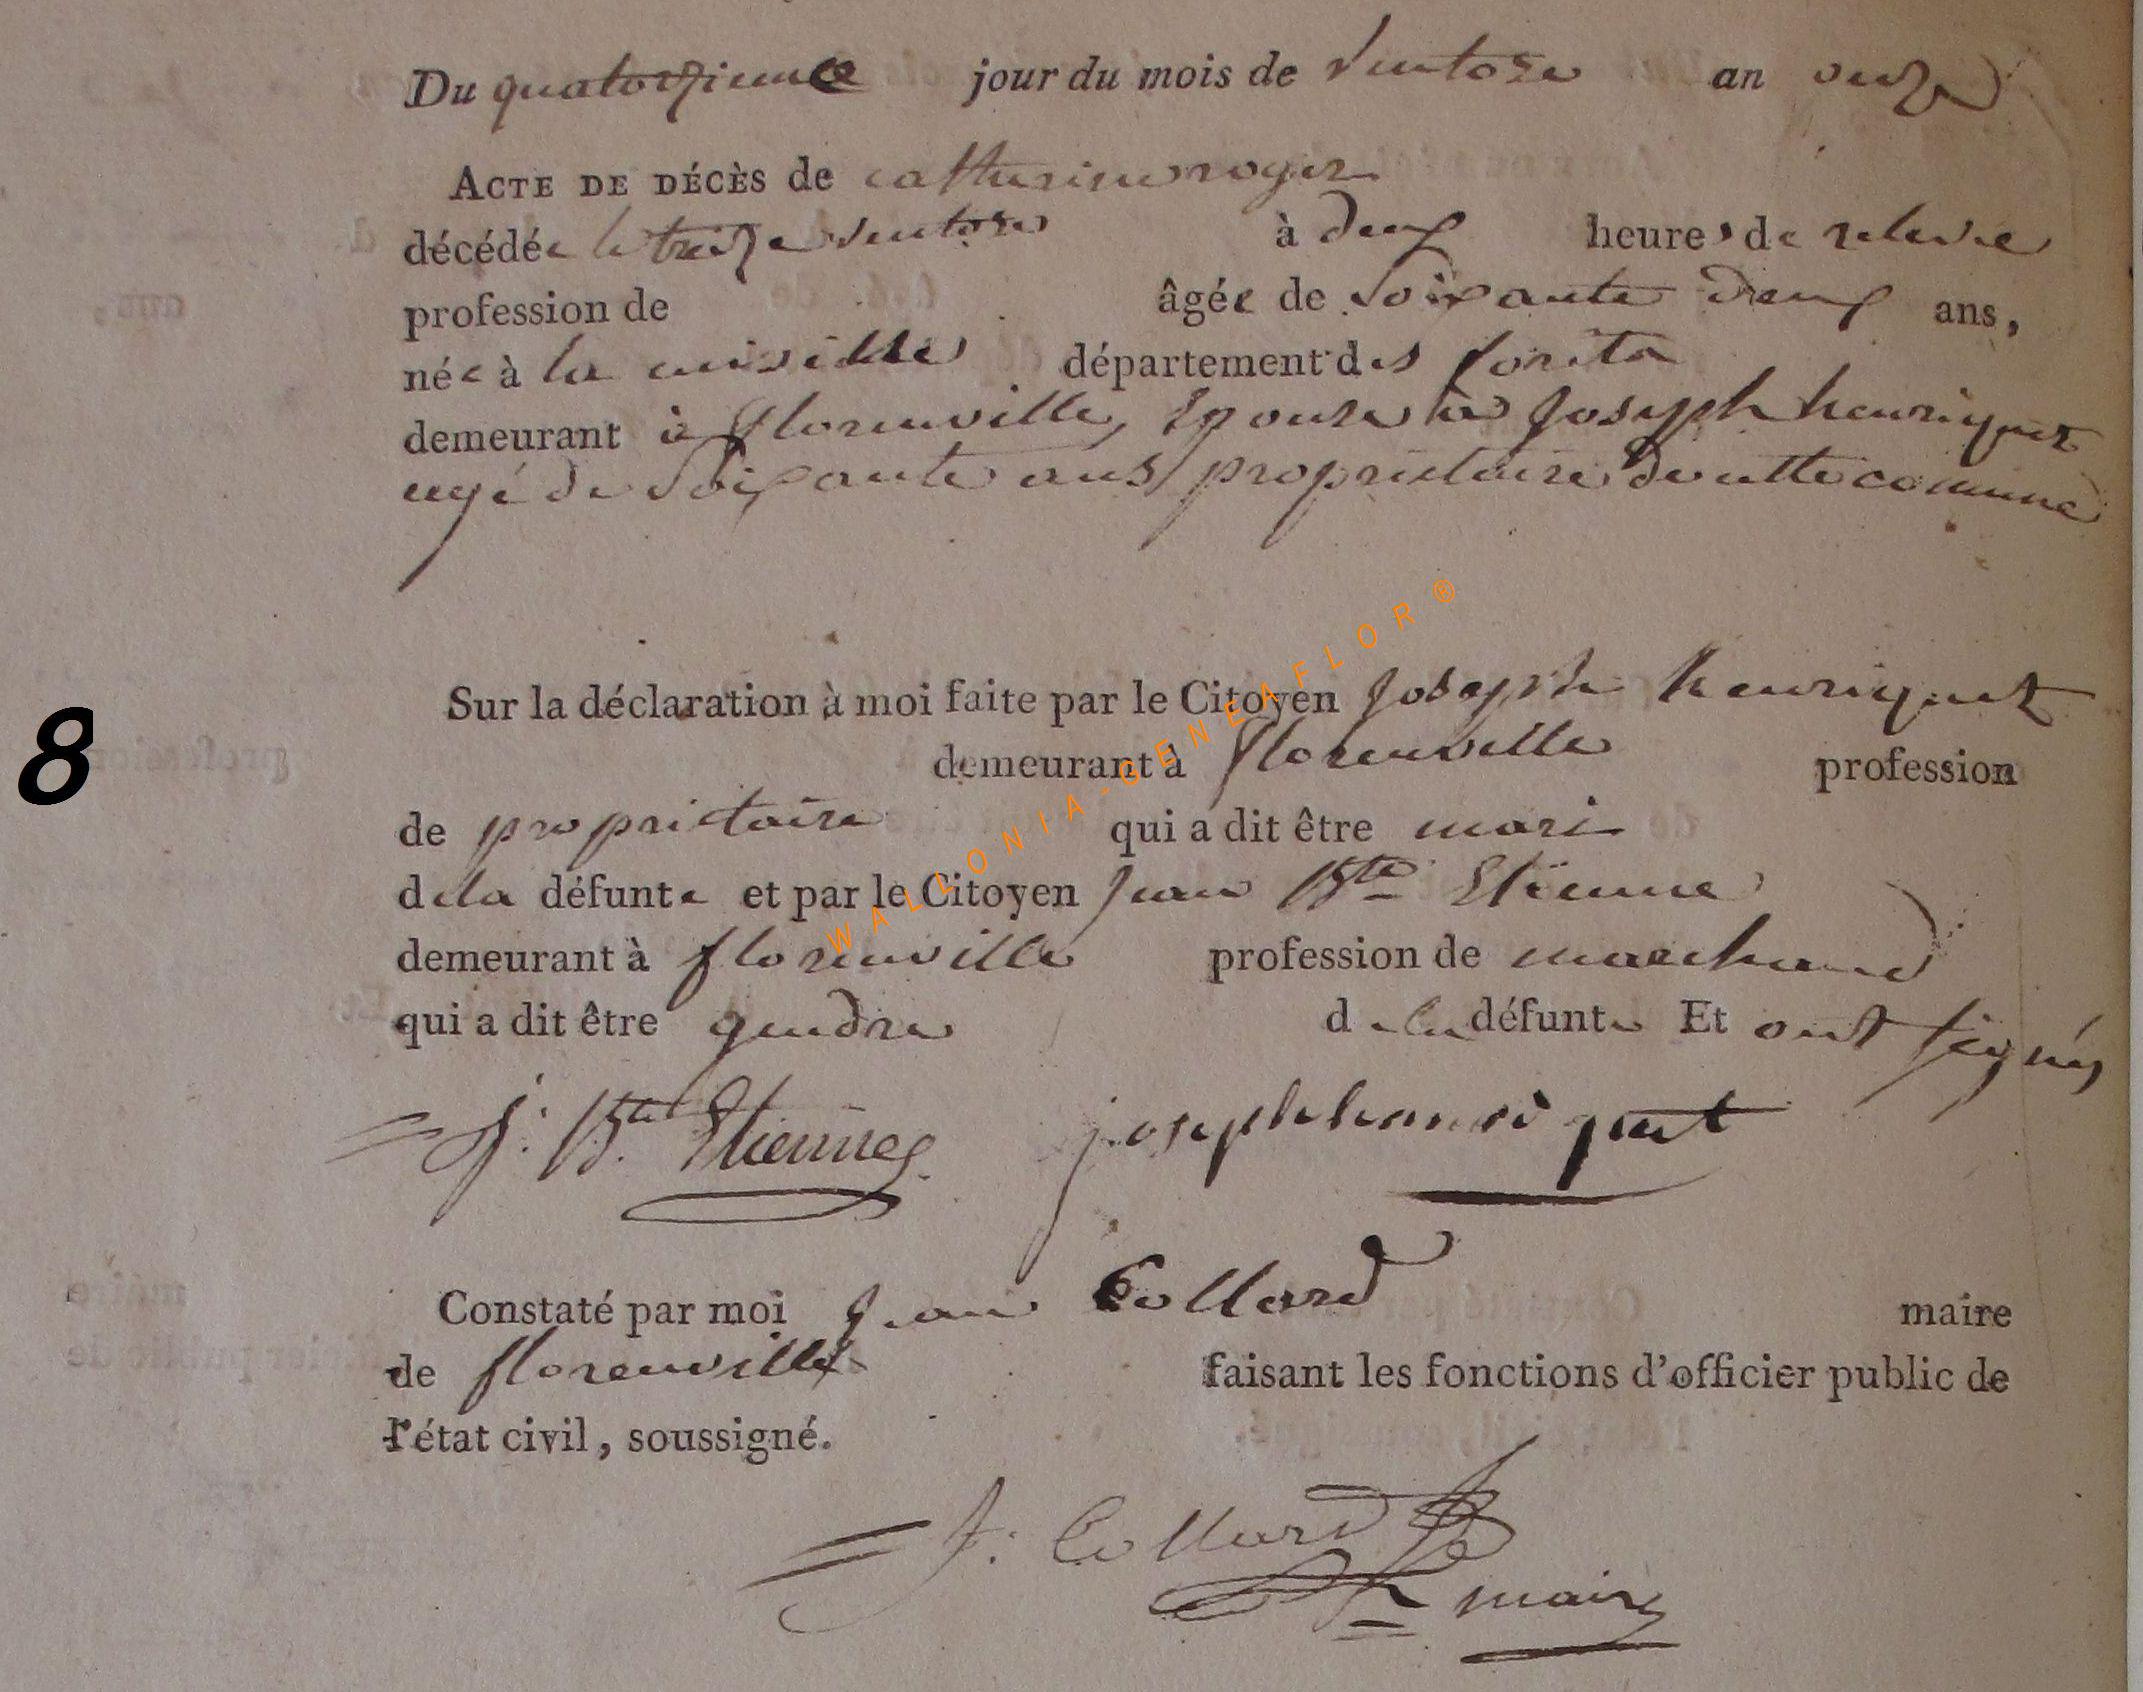 Du quatorzieme jour du mois de ventose an onze
ACTE DE DÉCÈS de catherine roger
décédée le treize ventose à deux heures de relevée
profession de âgée de soixante deux ans,
née à la cuisine département des forets
demeurant à florenville, Epouse à Joseph henriquet
agé de soixante ans, propriétaire de cette commune
Sur la déclaration à moi faite par le Citoyen Joseph henriquet
demeurant à florenville profession
de propriétaire qui a dit être mari
de la défunte et par le Citoyen jean Bte Etienne
demeurant à florenville profession de marchand
qui a dit être gendre de la défunte Et ont signés
J: Bte Etienne joseph henriquet
8
Constaté par moi jean Collard maire
de florenville faisant les fonctions d'officier public de
l'état civil, soussigné.
J: Collard
maire
WALLONIA-GENEAFLOR®